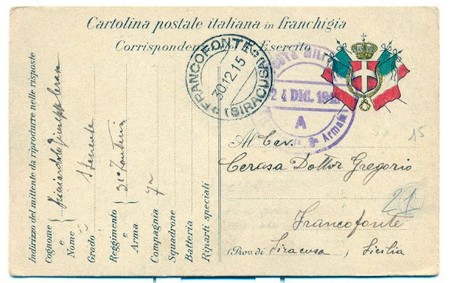 Cartolina postale italiana in franchigia
Corrisponden Esercito
FRANCOFONTE (SIRACUSA)
30.12.15
POSTA MILIT
24 DIC. 191
A
Armata
Al Cav.
Cerasa Dottor Gregorio
Francofonte
(Prov. di Siracusa, Sicilia
15
21
Indirizzo del mittente da riprodurre nelle risposte
Cognome
e
Nome
Grado Tenente
Reggimento 21° Fanteria
o
Arma
Compagnia 7a
Squadrone
Batteria
Riparti speciali